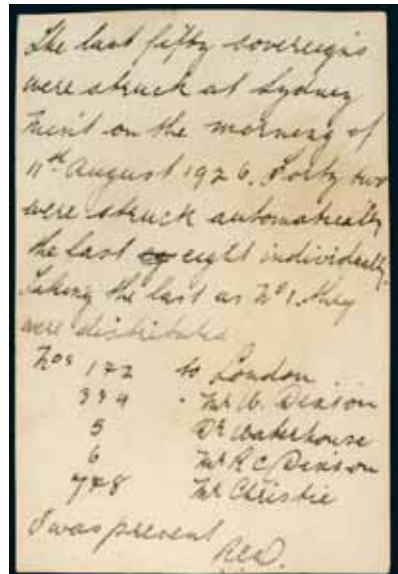 The last fifty sovereigns
were struck at Sydney
Mint on the morning of
11th August 1926. Forty two
were struck automatically
the last eight individually.
Taking the last as No 1. they
were distributed
Nos 1+2 to London
3+4 " Mr W. Dixson
5 Dr Waterhouse
6 Mr R C Dixson
7+8 Mr Christie
I was present